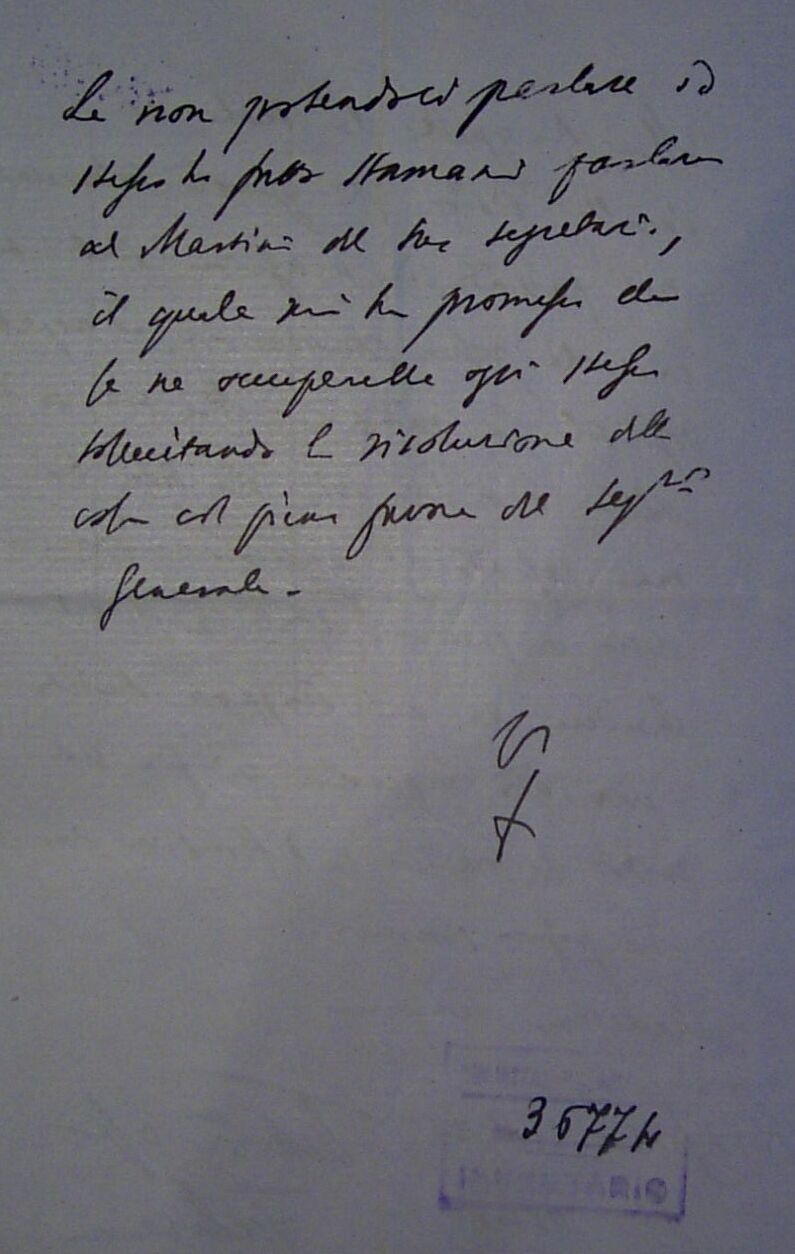 Le non potendoci parlare io
stesso ho fatto stamani parlare
al Martini del suo segretario,
il quale mi ha promesso che
se ne occuperebbe oggi stesso
sollecitando la risoluzione della
cosa col pieno favore del Seg.rio
Generale.
36774